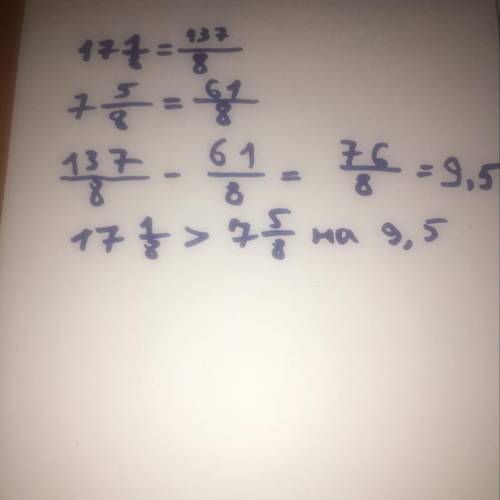 17 1/8 = 137/8
7 5/8 = 61/8
137/8 - 61/8 = 76/8 = 9,5
17 1/8 > 7 5/8 на 9,5